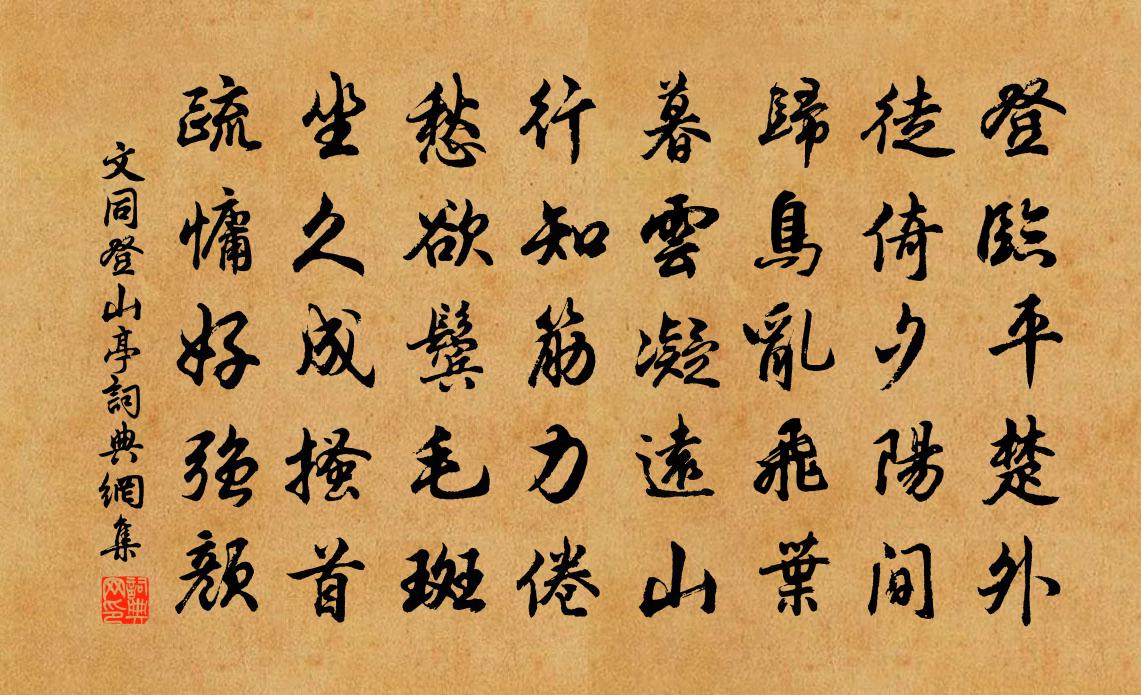 登臨平楚外
徒倚夕陽間
歸鳥亂飛葉
暮雲凝遠山
行知筋力倦
愁欲鬢毛斑
坐久成搔首
疏慵好強顏
文同登山亭詞典網集
詞典网印